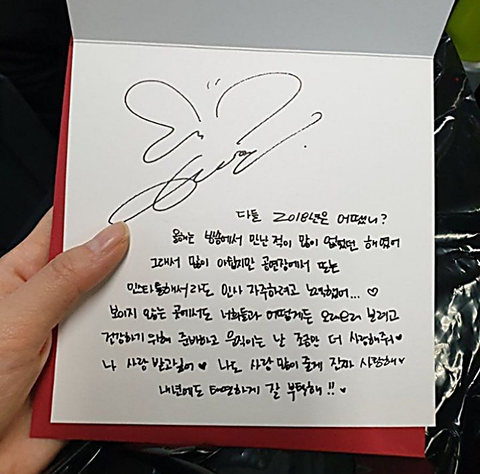 다들 2018년은 어땠니?
올해는 방송에서 만난 적이 많이 없었던 해였어
그래서 많이 아쉽지만 공연장에서 또는
인스타를 해서라도 인사 자주하려고 노력했어... ♡
보이지 않는 곳에서도 너희들과 어떻게든 오래오래 보려고
건강하기 위해 준비하고 움직이는 날 조금만 더 사랑해줘♥
나 사랑 받고싶어♥ 나도 사랑 많이 줄게 진짜 사랑해♥
내년에도 태연하게 잘 부탁해!! ♥